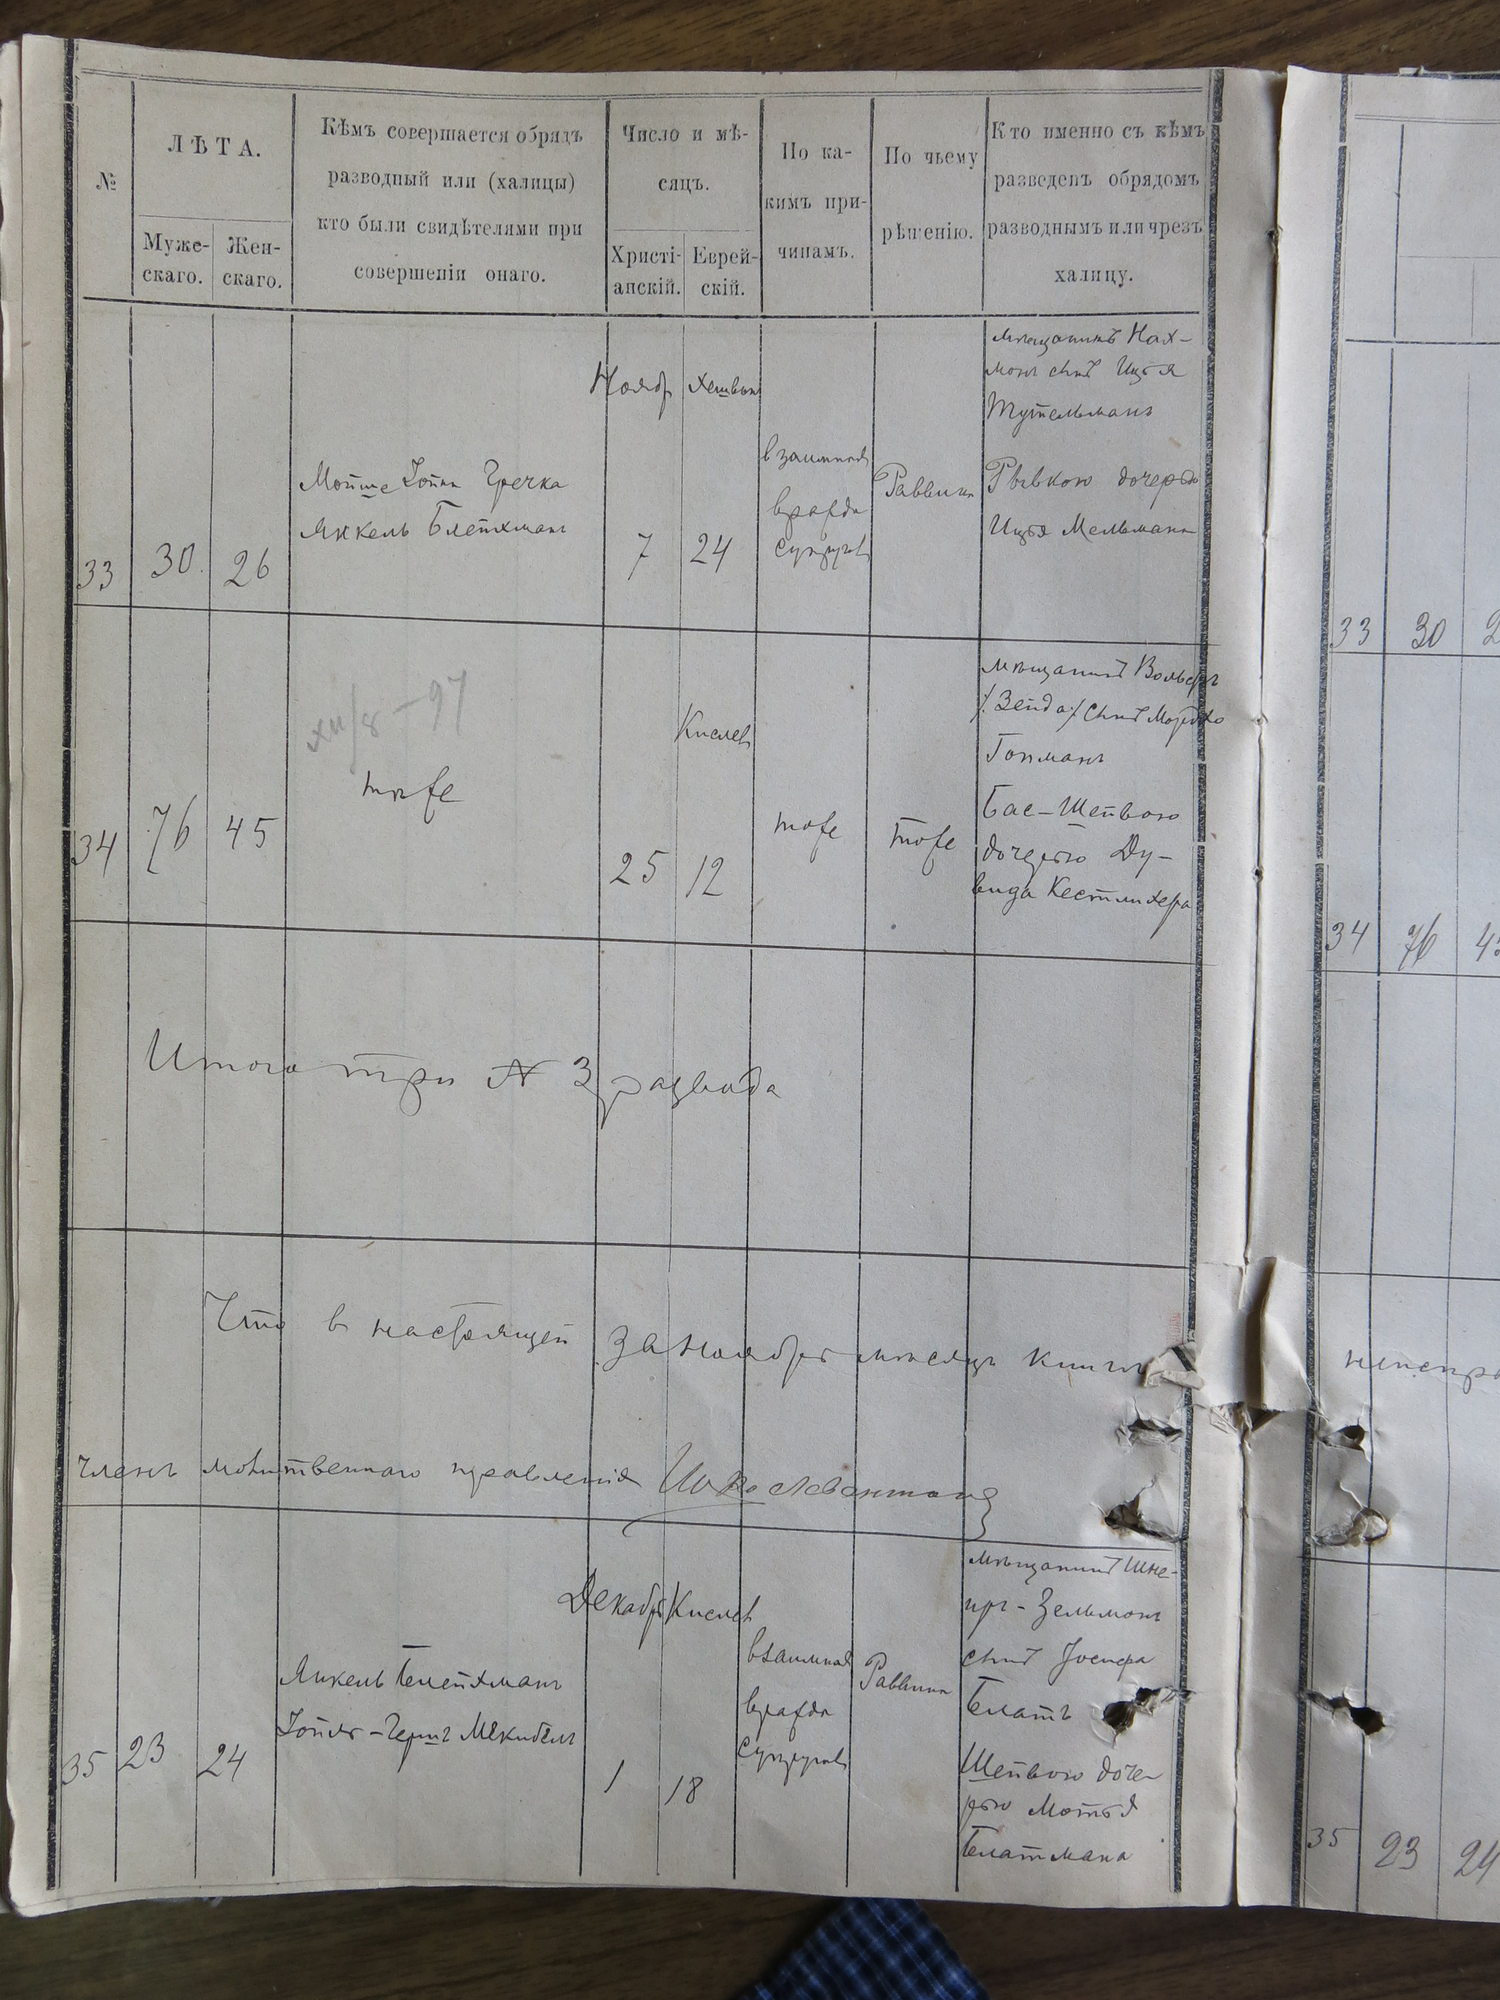 №
ЛѢТА.
Муже-
скаго.
Жен-
скаго.
Кѣмъ совершается обрядъ
разводный или (халицы)
кто были свидѣтелями при
совершеніи онаго.
Число и мѣ-
сяцъ.
Христі-
анскій.
Еврей-
скій.
По ка-
кимъ при-
чинамъ.
По чьему
рѣшенію.
Кто именно съ кѣмъ
разведенъ обрядомъ
разводнымъ или чрезъ
халицу.
33
30
26
Мойше Гречка
Янкель Блейхманъ
Ноябр
7
24
взаимная
вражда
супруговъ
Раввина
мѣщанинъ Нах-
манъ сынъ Ицья
Тутельманъ
Рывкою дочерью
Ицья Мельмана
34
76
45
XII/8-97
тоже
25
Кислев
12
тоже
тоже
мѣщанинъ Вольфъ
/:Зейда:/ сынъ Мордко
Гопманъ
Бас-Шейвою
дочерью Ду-
вида
Итого три № 3 развода
Что в настоящей за ноябрь мѣсяцъ книгѣ
членъ молитвенного правленія
35
23
24
Янкель Блейхманъ
Декабрь
1
Кислев
18
взаимная
вражда
супруговъ
Раввина
мѣщанинъ Шне-
иръ-Зельманъ
сынъ Іосифа
Блатъ
Шейвою доче-
рью Мотья
Блатмана
33
30
34
76
35
23
24